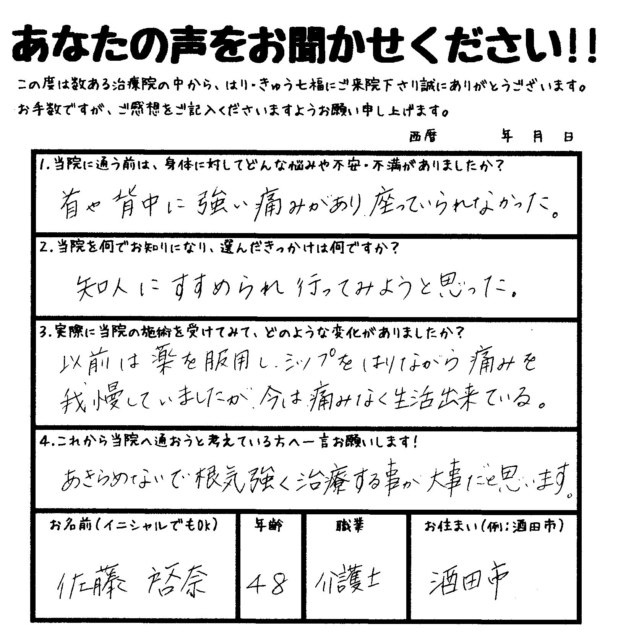 あなたの声をお聞かせください!!
この度は数ある治療院の中から、はり・きゅう七福にご来院下さり誠にありがとうございます。
お手数ですが、ご感想をご記入くださいますようお願い申し上げます。
西暦 年 月 日
1.当院に通う前は、身体に対してどんな悩みや不安・不満がありましたか?
首や背中に強い痛みがあり座っていられなかった。
2.当院を何でお知りになり、選んだきっかけは何ですか?
知人にすすめられ行ってみようと思った。
3.実際に当院の施術を受けてみて、どのような変化がありましたか?
以前は薬を服用し、シップをはりながら痛みを
我慢していましたが、今は痛みなく生活出来ている。
4.これから当院へ通おうと考えている方へ一言お願いします!
あきらめないで根気強く治療する事が大事だと思います。
お名前(イニシャルでもOK) 年齢 職業 お住まい(例;酒田市)
佐藤 啓奈 48 介護士 酒田市